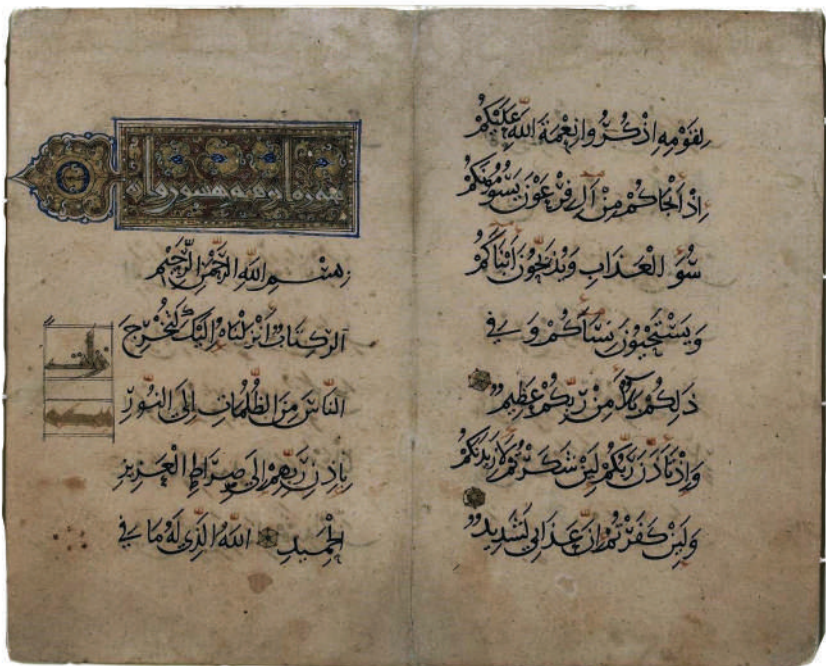 لِقَوْمِهِ اذْكُرُوا نِعْمَةَ اللَّهِ عَلَيْكُمْ
اِذْ اَنْجَاكُمْ مِنْ آلِ فِرْعَوْنَ يَسُومُونَكُمْ
سُوءَ الْعَذَابِ وَيُذَبِّحُونَ اَبْنَآكُمْ
وَيَسْتَحْيُونَ نِسَآكُمْ وَفِي
ذَلِكُمْ بَلَآءٌ مِنْ رَبِّكُمْ عَظِيمٌ
وَاِذْ تَاَذَّنَ رَبُّكُمْ لَئِنْ شَكَرْتُمْ لَاَزِيدَنَّكُمْ
وَلَئِنْ كَفَرْتُمْ اِنَّ عَذَابِي لَشَدِيدٌ
بِسْمِ اللَّهِ الرَّحْمَنِ الرَّحِيمِ
الر كِتَابٌ اَنْزَلْنَاهُ اِلَيْكَ لِتُخْرِجَ
النَّاسَ مِنَ الظُّلُمَاتِ اِلَى النُّورِ
بِاِذْنِ رَبِّهِمْ اِلَى صِرَاطِ الْعَزِيزِ
الْحَمِيدِ اللَّهِ الَّذِي لَهُ مَا فِي
نزلت
بمكة